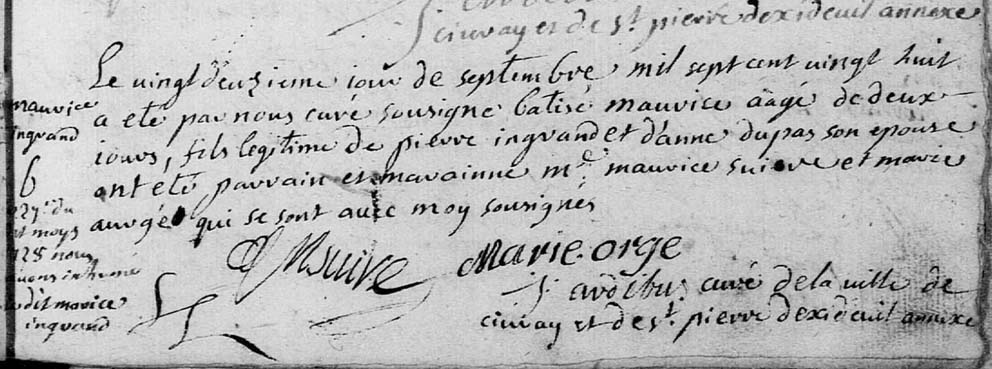 civray et de st pierre dexideuil annexe
Le vingt deuzieme iour de septembre mil sept cent vingt huit
a ete par nous curé sousigne batisé maurice aâgé de deux
iours, fils legitime de pierre ingrand et d'anne dupas son epouse
ont été parrain et marainne me maurice suire et marie
aurgé qui se sont avec moy sousignés
MSuire
Marie. orge
curé de la ville de
civray et de st pierre dexideuil annexe
maurice
ingrand
b
27e du
et moys
128 nous
avons inhumé
ledit morice
ingrand